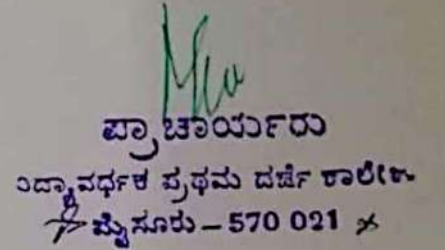 ಪ್ರಾಚಾರ್ಯರು
ವಿದ್ಯಾವರ್ಧಕ ಪ್ರಥಮ ದರ್ಜೆ ಕಾಲೇಜು
ಮೈಸೂರು – 570 021